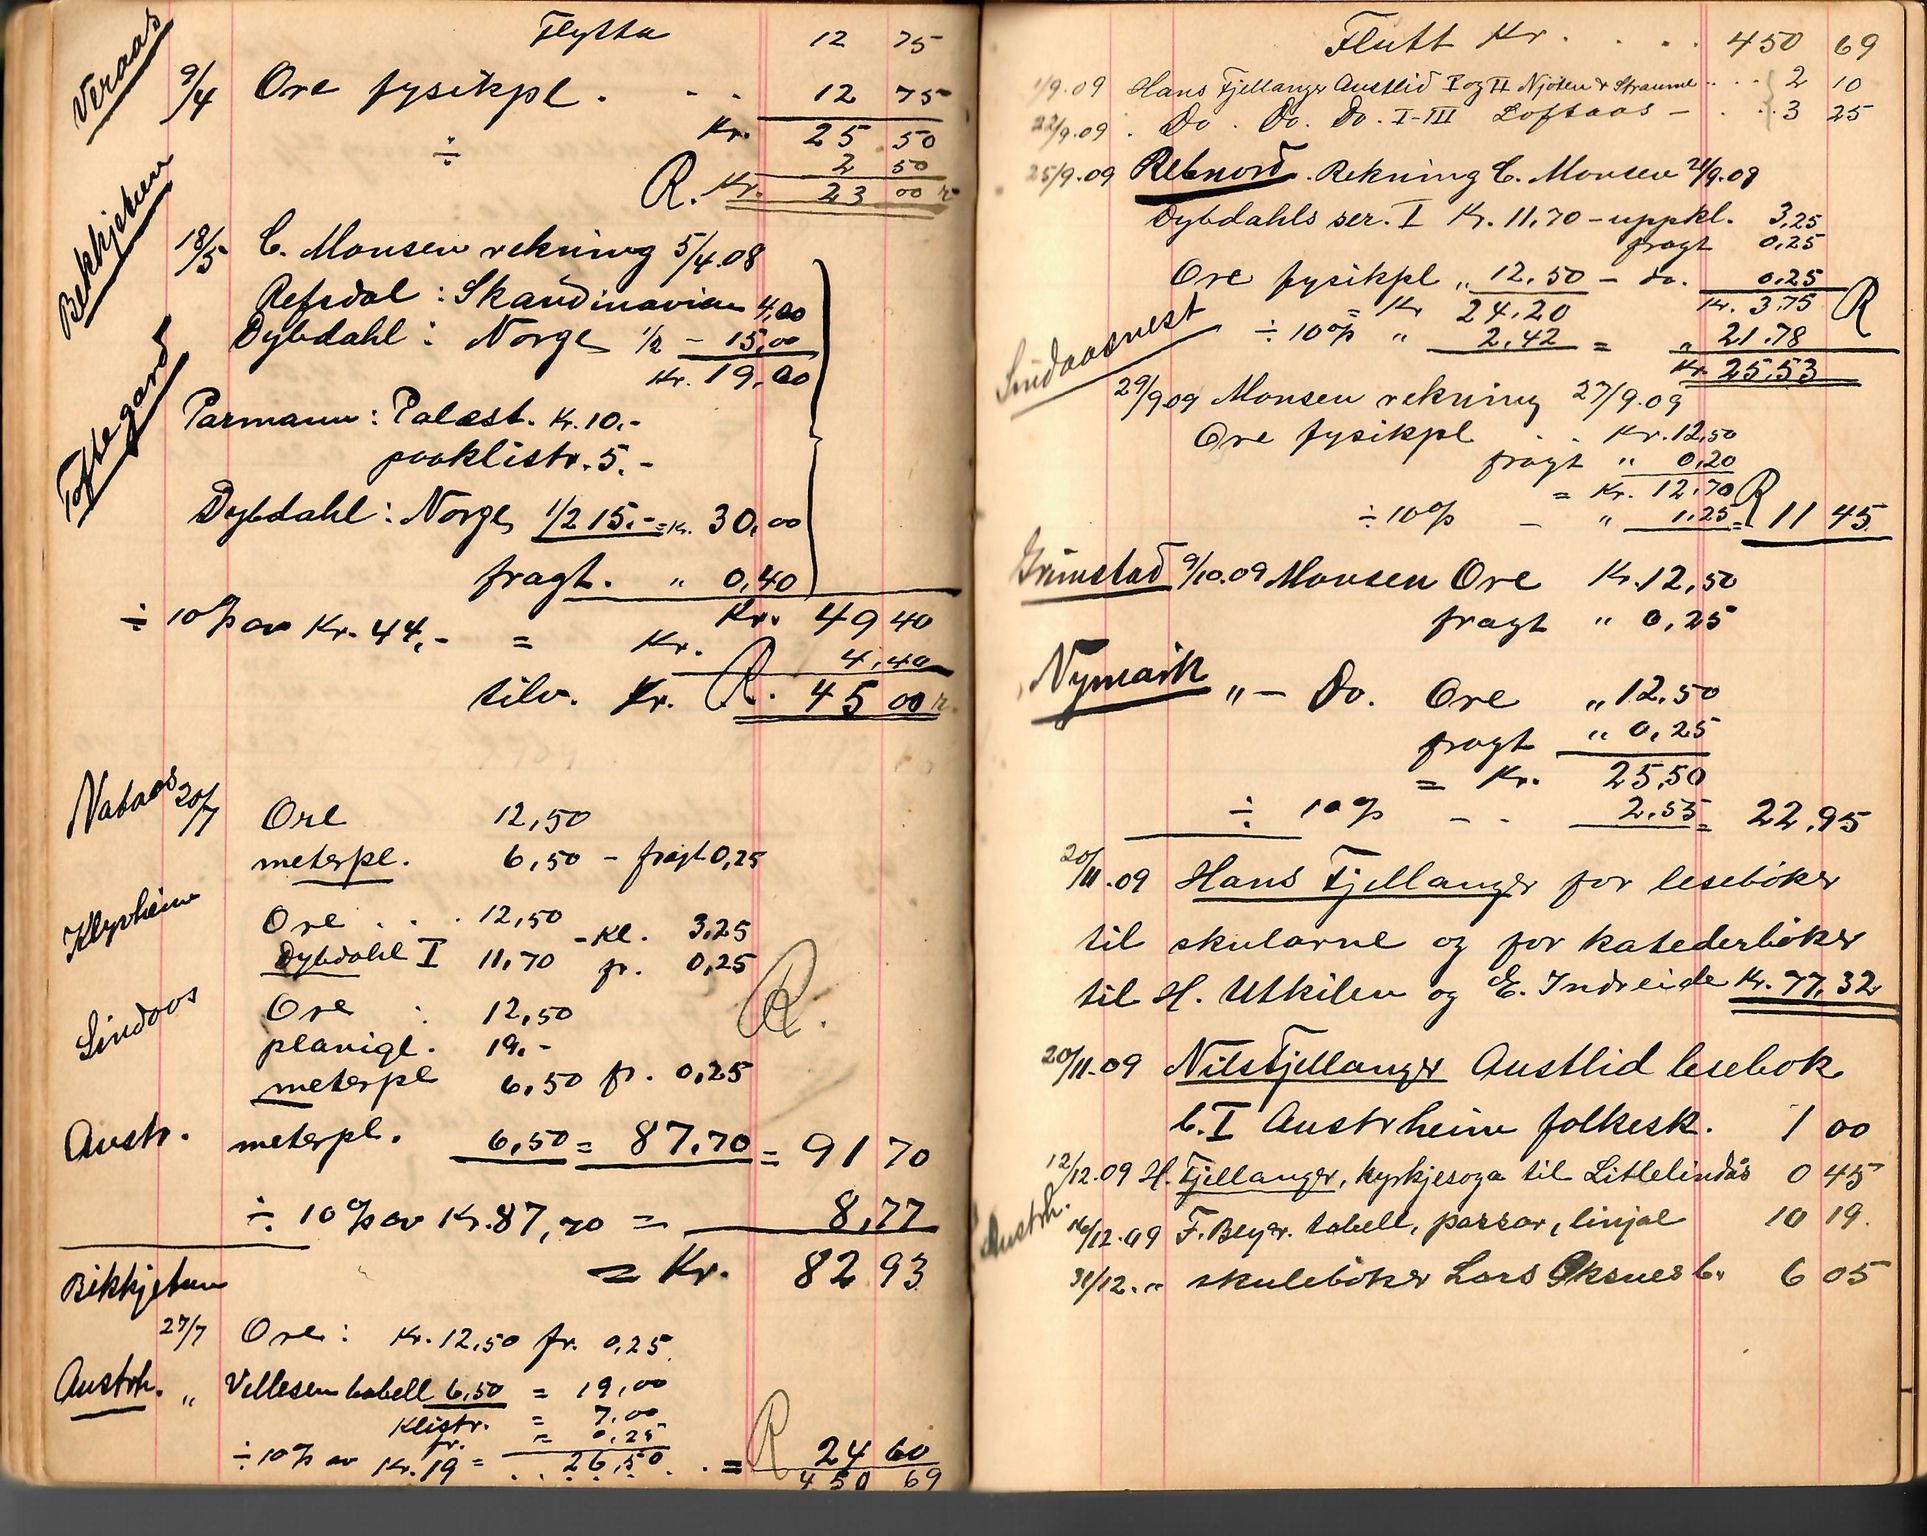 Flytta 12 75
Veraas 9/4 Ore fysikpl. - - 12 75
Kr. 25 50
÷ 2 50
R. Kr. 23 00 r
Bekkjetun 18/5 C. Monsen rekning 5/4.08
Refsdal : Skandinavien 4,00
Dybdahl : Norge 1/2 - 15,00
Kr. 19,00
Toftegard Parmann : Palæst. Kr. 10.-
paaklistr. 5.-
Dybdahl : Norge 1/2 15.- = Kr. 30,00
fragt. " 0,40
Kr. 49 40
÷ 10 % av Kr. 44,- = Kr. 4,40
tilv. Kr. R. 45 00 r.
Nataas 20/7 Ore 12,50
meterpl. 6,50 - fragt 0,25
Klyvheim Ore . . . 12,50
Dybdahl I 11,70 - Kl. 3,25
fr. 0,25
R.
Lindaas Ore . 12,50
planigl. 19.-
meterpl 6,50 fr. 0,25
Austr. meterpl. 6,50 = 87,70 = 91 70
÷ 10 % av Kr. 87,70 = 8,77
= Kr. 82 93
Bekkjetun
27/7 Ore : Kr. 12,50 fr. 0,25
Austrh. " Villesen tabell 6,50 = 19,00
Klistr. = 7,00
fr. = 0,25
÷ 10 % av Kr. 19 = . . 26,50 . . = R 24 60
450 69
Flutt Kr. . . . 450 69
1/9.09 Hans Fjellanger Austlid I og II Njøten & Straume . . . 2 10
22/9.09 . Do . Do. Do. I-III Loftaas - . . 3 25
25/9.09 Rebnord. Rekning C. Monsen 21/9.09
Dybdahls ser. I Kr. 11,70 - uppkl. 3,25
fragt 0,25
Ore fysikpl " 12,50 - do. 0,25
= Kr 24,20 Kr. 3,75 R
÷ 10 % " 2,42 = " 21,78
Kr 25,53
Lindaasnest
29/9.09 Monsen rekning 27/9.09
Ore fysikpl . . Kr. 12,50
fragt " 0,20
= Kr. 12,70
÷ 10 % - " 1,25 = R 11 45
Grimstad 9/10.09 Monsen Ore Kr. 12,50
fragt " 0,25
Nymark " - Do. Ore " 12,50
fragt " 0,25
= Kr. 25,50
÷ 10 % - - 2,55 = 22,95
20/11.09 Hans Fjellanger for lesebøker
til skularne og for katederbøker
til H. Utkilen og E. Indreide Kr. 77,32
20/11.09 Nils Fjellanger Austlid lesebok
b. I Austrheim folkesk. 1 00
12/12.09 H. Fjellanger, kyrkjesoga til Litlelindås 0 45
Austrh. 16/12.09 F. Beyer. tabell, passar, linjal 10 19.
31/12. " skulebøker Lars Oksnes b. 6 05